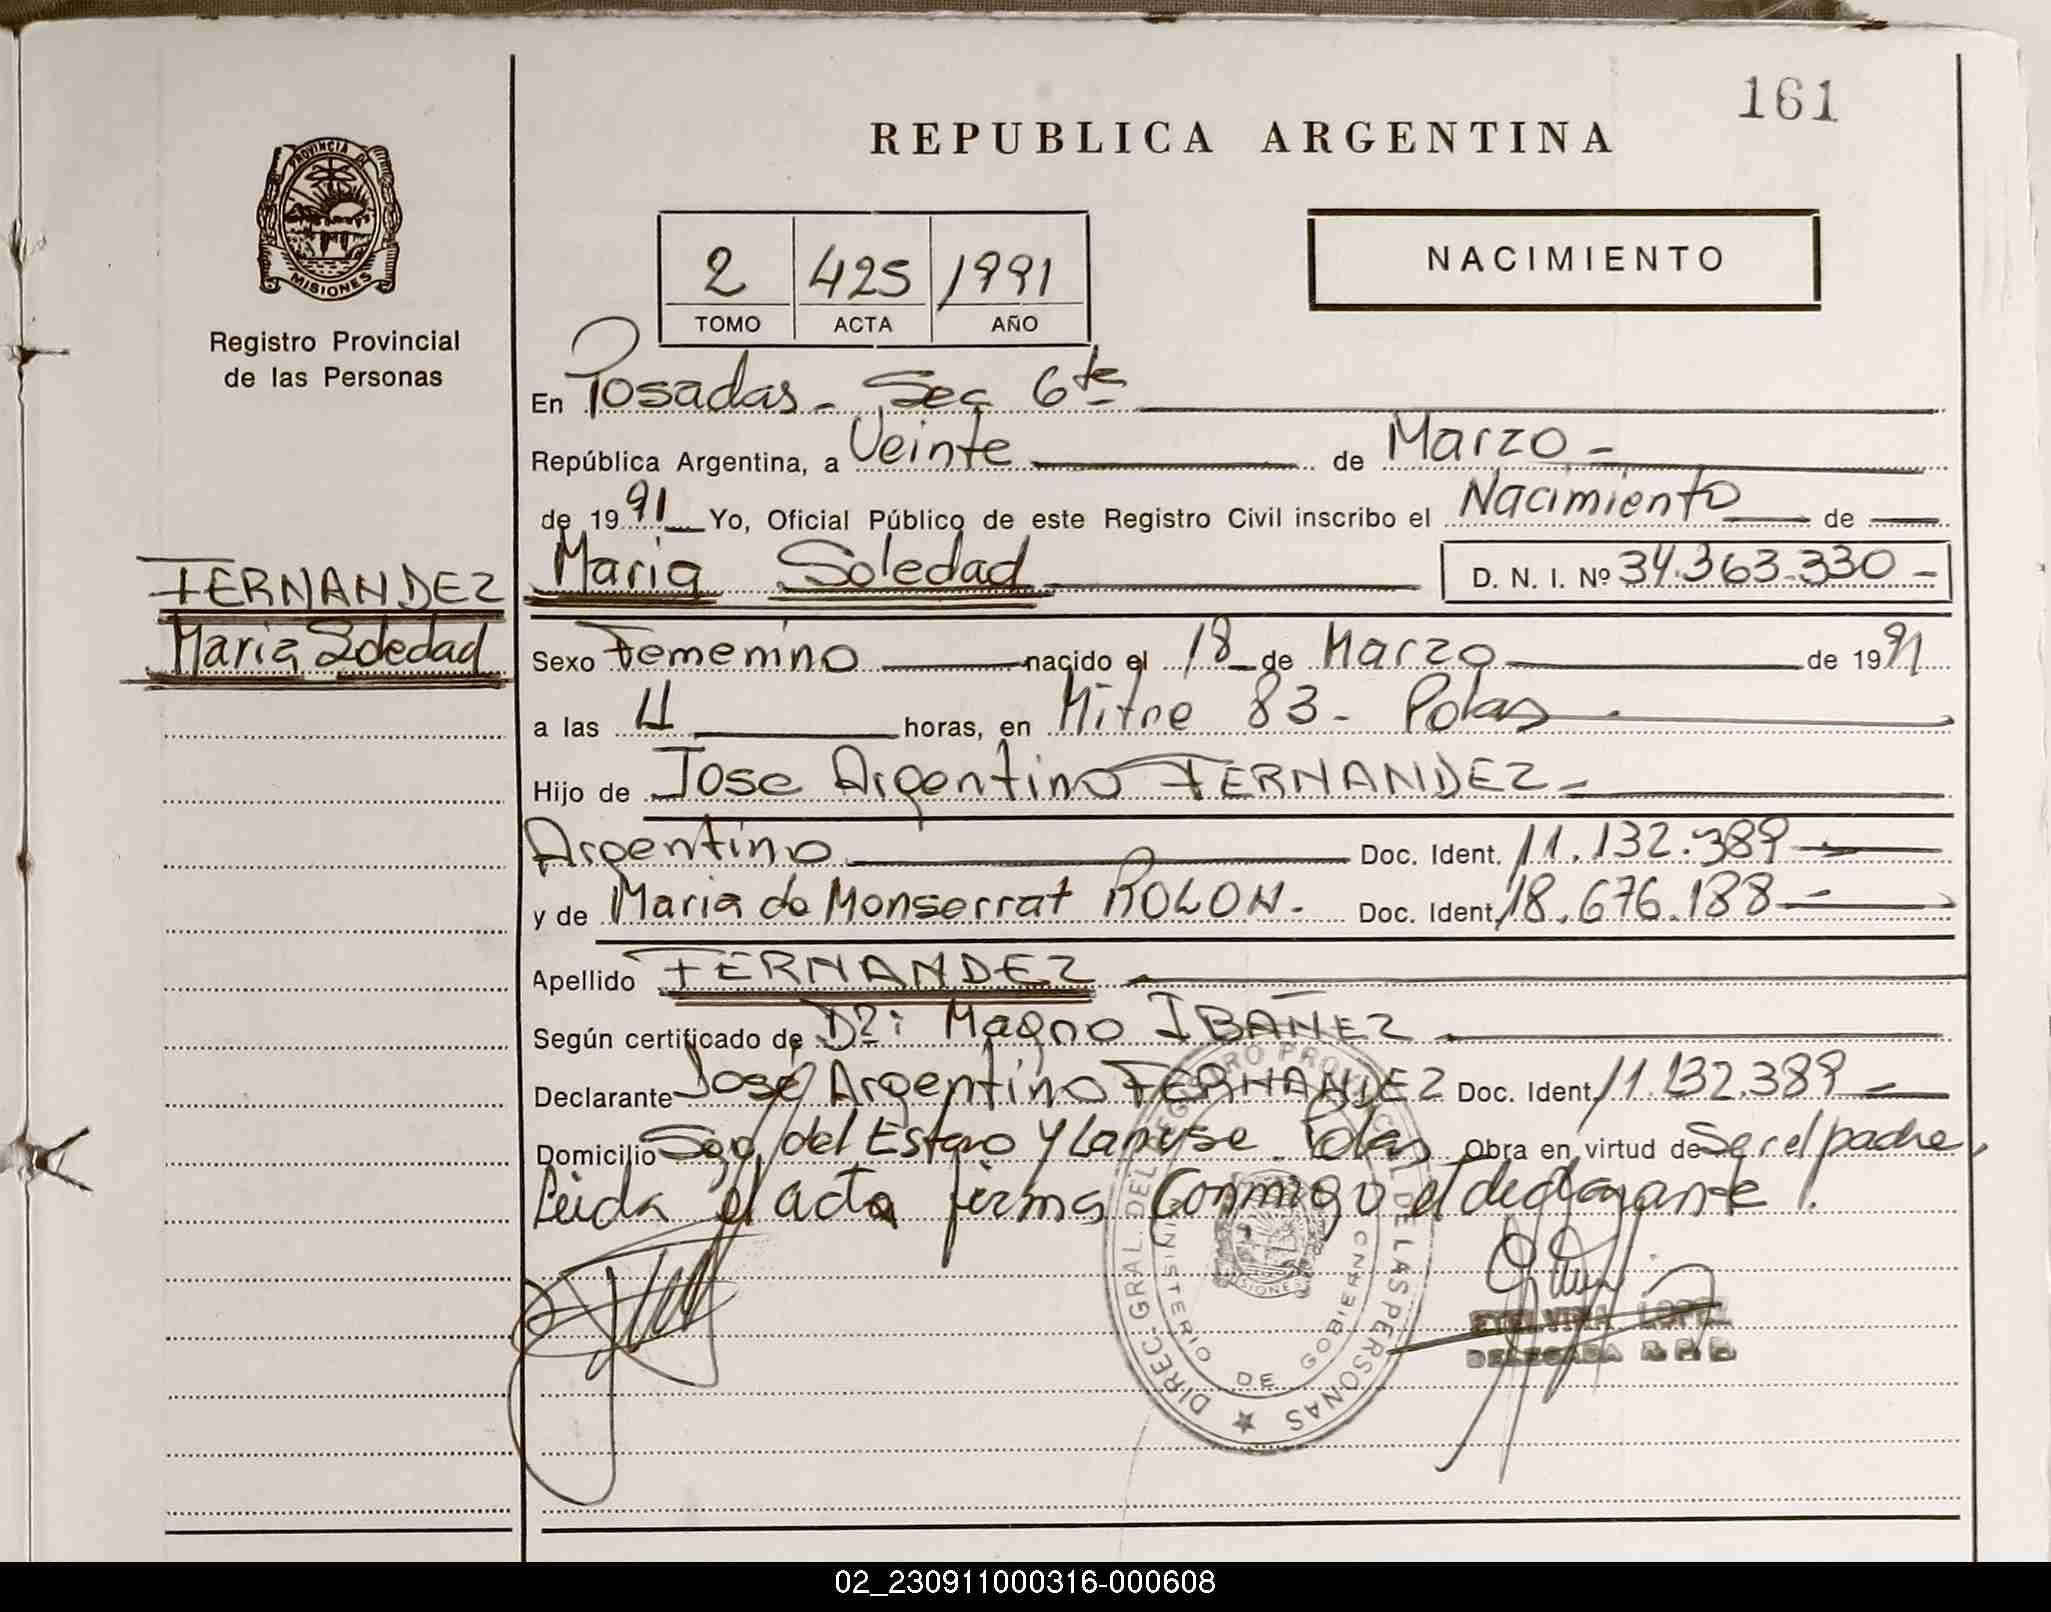 161
REPUBLICA ARGENTINA
PROVINCIA DE
MISIONES
Registro Provincial
de las Personas
2 425 1991
TOMO ACTA AÑO
NACIMIENTO
En Posadas - Sec 6ta
República Argentina, a Veinte de Marzo -
de 1991 Yo, Oficial Público de este Registro Civil inscribo el Nacimiento de
FERNANDEZ
Maria Soledad
Maria Soledad D. N. I. Nº 34.363.330 -
Sexo Femenino nacido el 18 de Marzo de 1991
a las 11 horas, en Mitre 83 - Pdas
Hijo de Jose Argentino FERNANDEZ -
Argentino Doc. Ident. 11.132.389
y de Maria de Monserrat ROLON. Doc. Ident. 18.676.188
Apellido FERNANDEZ
Según certificado de Magno IBAÑEZ
Declarante José Argentino FERNANDEZ Doc. Ident. 11.132.389
Domicilio Sgo. del Estero y Lanusse Pdas Obra en virtud de Ser el padre,
Leida el acta firma conmigo el declarante.
DIREC. GRAL. DEL REGISTRO PROVINCIAL DE LAS PERSONAS
MINISTERIO DE GOBIERNO
MISIONES
ETELVINA LOPEZ
DELEGADA R.P.P.
02_230911000316-000608